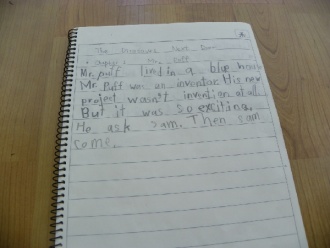 The Next Door
Mr. Puff
Mr. Puff lived in a blue house
Mr. Puff was an inventor. His new
project wasn't invention at all.
But it was so exciting.
He ask sam. Then sam
come.